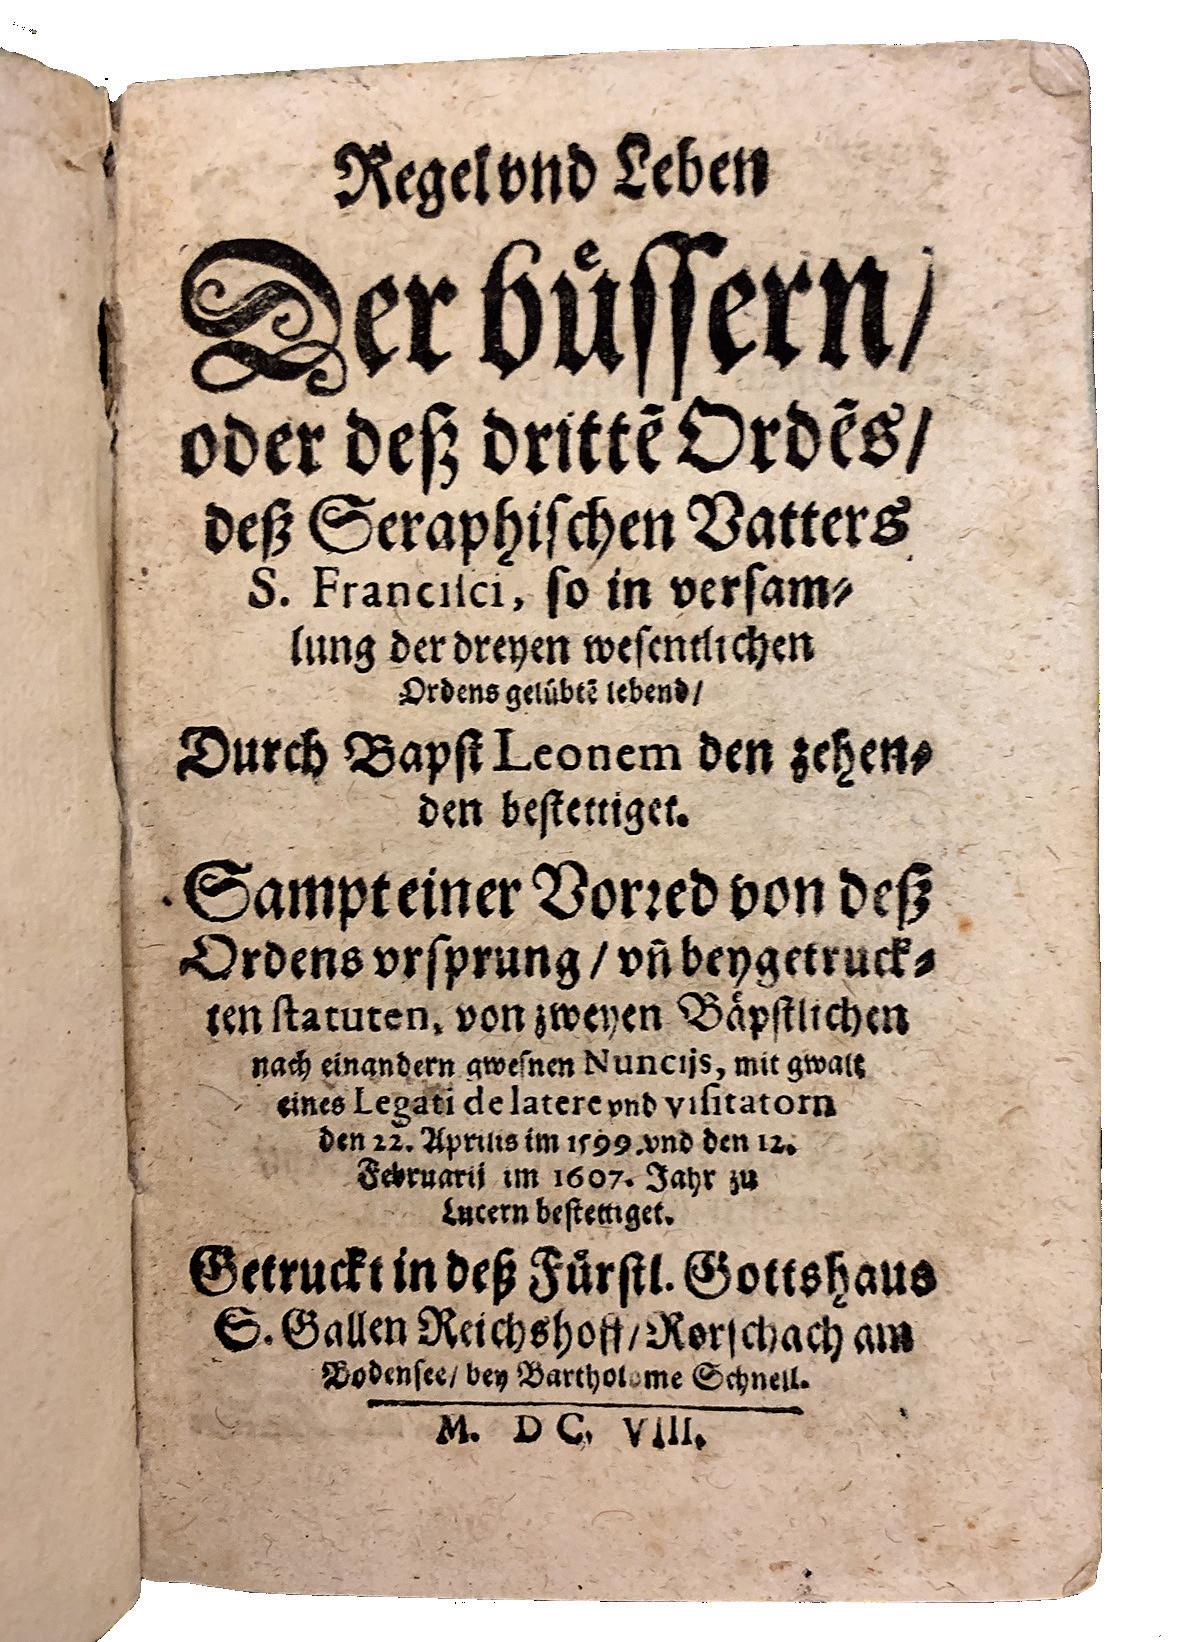 Regel vnd Leben
Der buͤſſern/
oder deß drittẽ Ordẽs/
deß Seraphiſchen Vatters
S. Franciſci, ſo in verſam⸗
lung der dreyen weſentlichen
Ordens gelübtẽ lebend/
Durch Bapſt Leonem den zehen⸗
den beſtettiget.
Sampt einer Vorꝛed von deß
Ordens vrſprung/ vñ beygetruck⸗
ten ſtatuten, von zweyen Baͤpſtlichen
nach einandern gweſnen Nuncijs, mit gwalt
eines Legati de latere vnd viſitatorn
den 22. Aprilis im 1599. vnd den 12.
Februarij im 1607. Jahr zu
Lucern beſtettiget.
Getruckt in deß Fuͤrſtl. Gottshaus
S. Gallen Reichshoff/ Rorſchach am
Bodenſee/ bey Bartholome Schnell.
M. DC. VIII.